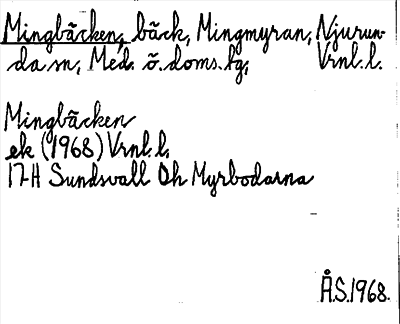 Mingbäcken, bäck, Mingmyran, Njurun-
da sn, Med. ö. doms. hg, Vrnl. l.
Mingbäcken
ek (1968) Vrnl. l.
17H Sundsvall Oh Myrbodarna
Å.S. 1968.